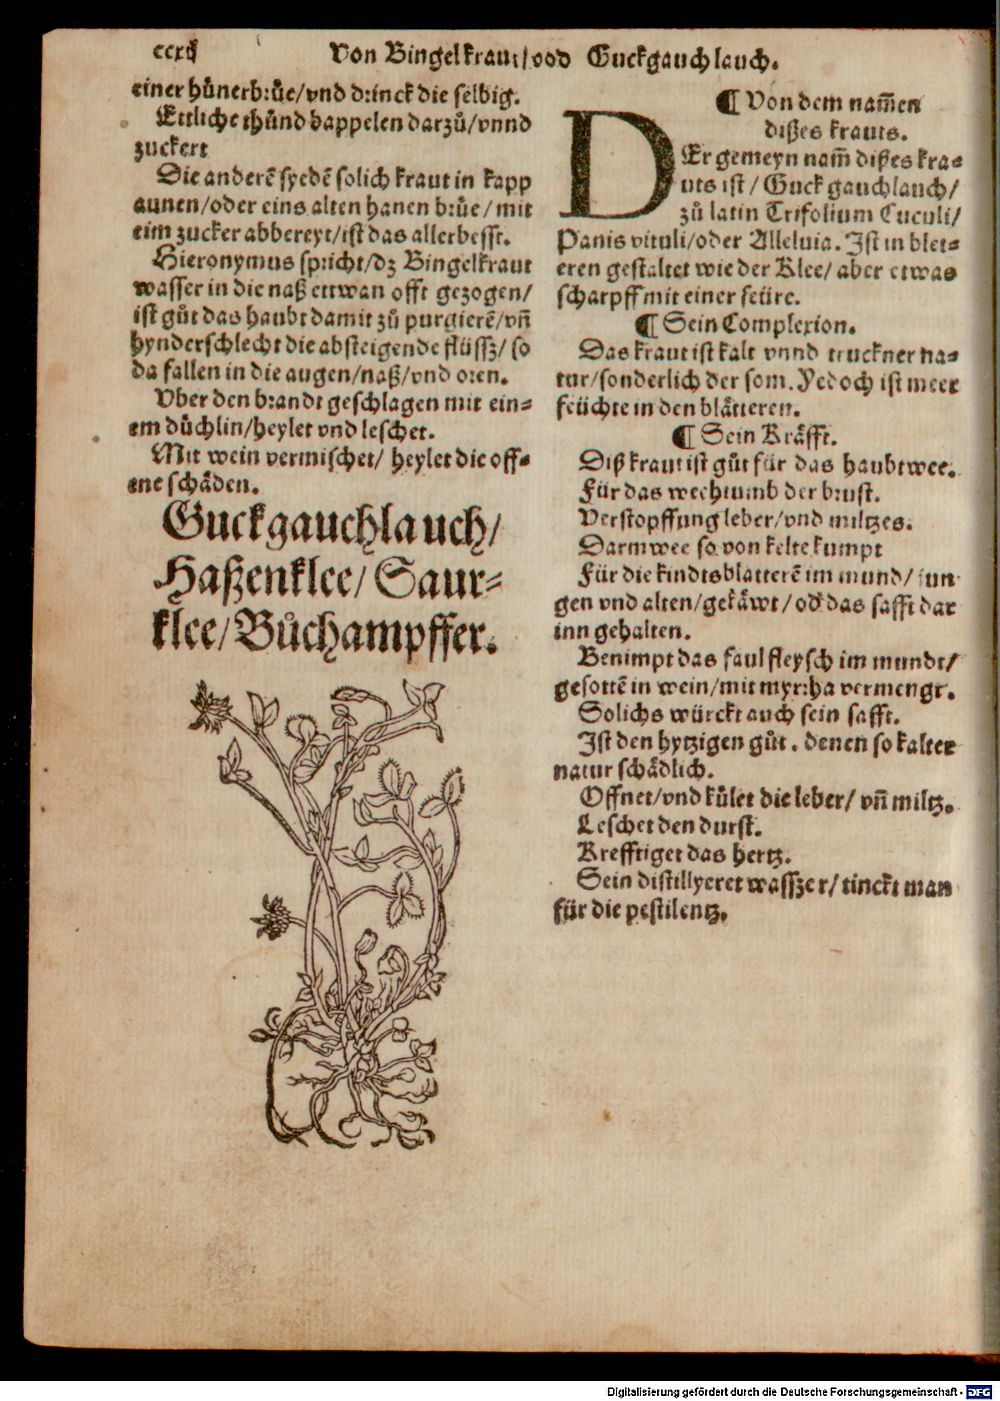 Von Bingelkraut/vnd Guckgauchlauch.
einer hůnerbrůe/vnd drinck die selbig.
Ettliche thůnd bappelen darzů/vnnd
zuckert
Die anderē syedē solich kraut in kapp
aunen/oder eins alten hanen brůe/ mit
eim zucker abbereyt/ist das allerbesst.
Hieronymus spricht/dz Bingelkraut
wasser in die naß ettwan offt gezogen/
ist gůt das haubt damit zů purgierē/vn̄
hynderschlecht die absteigende flüssz/ so
da fallen in die augen/naß/vnd oren.
Vber den brandt geschlagen mit ein⸗
em důchlin/heylet vnd leschet.
Mit wein vermischet/ heylet die off⸗
ene schäden.
Guckgauchlauch/
Haßenklee/ Saur⸗
klee/Bůchampffer.
¶ Von dem nam̄en
dißes krauts.
DEr gemeyn nam̄ dißes kra⸗
uts ist/ Guckgauchlauch/
zů latin Trifolium Cuculi/
Panis vituli/oder Alleluia. Ist in blet⸗
eren gestaltet wie der Klee/ aber etwas
scharpff mit einer seüre.
¶ Sein Complexion.
Das kraut ist kalt vnnd truckner na⸗
tur/sonderlich der som. Yedoch ist meer
feüchte in den blätteren.
¶ Sein Kräfft.
Diß kraut ist gůt für das haubtwee.
Für das wechtumb der brust.
Verstopffung leber/vnd miltzes.
Darmwee so von kelte kumpt
Für die kindtsblatterē im mund/ iun
gen vnd alten/gekäwt/ od das safft dar
inn gehalten.
Benimpt das faulfleysch im mundt/
gesottē in wein/mit myrrha vermengt.
Solichs würckt auch sein safft.
Ist den hytzigen gůt. denen so kalter
natur schädlich.
Offnet/vnd kůlet die leber/ vn̄ miltz.
Leschet den durst.
Krefftiget das hertz.
Sein distillyeret wasszer/ tinckt man
für die pestilentz.
Digitalisierung gefördert durch die Deutsche Forschungsgemeinschaft - DFG